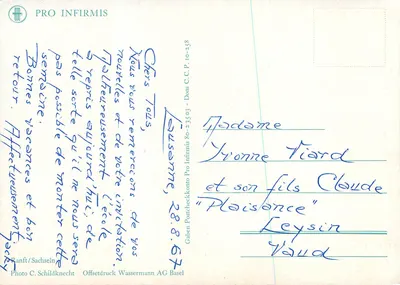 PRO INFIRMIS
Lausanne, 28.8.67
Chers Tous,
Nous vous remercions de vos
nouvelles et de votre invitation.
Malheureusement l'école
a repris aujourd'hui, de
telle sorte qu'il ne nous sera
pas possible de monter cette
semaine.
Bonnes vacances et bon
retour. Affectueusement.
Jacky
Ranft/Sachseln
Photo C. Schildknecht Offsetdruck Wassermann AG Basel
Gaben Postcheckkonto Pro Infirmis 80-23503 - Dons C.C.P. 10-258
Madame
Yvonne Tiard
et son fils Claude
"Plaisance"
Leysin
Vaud